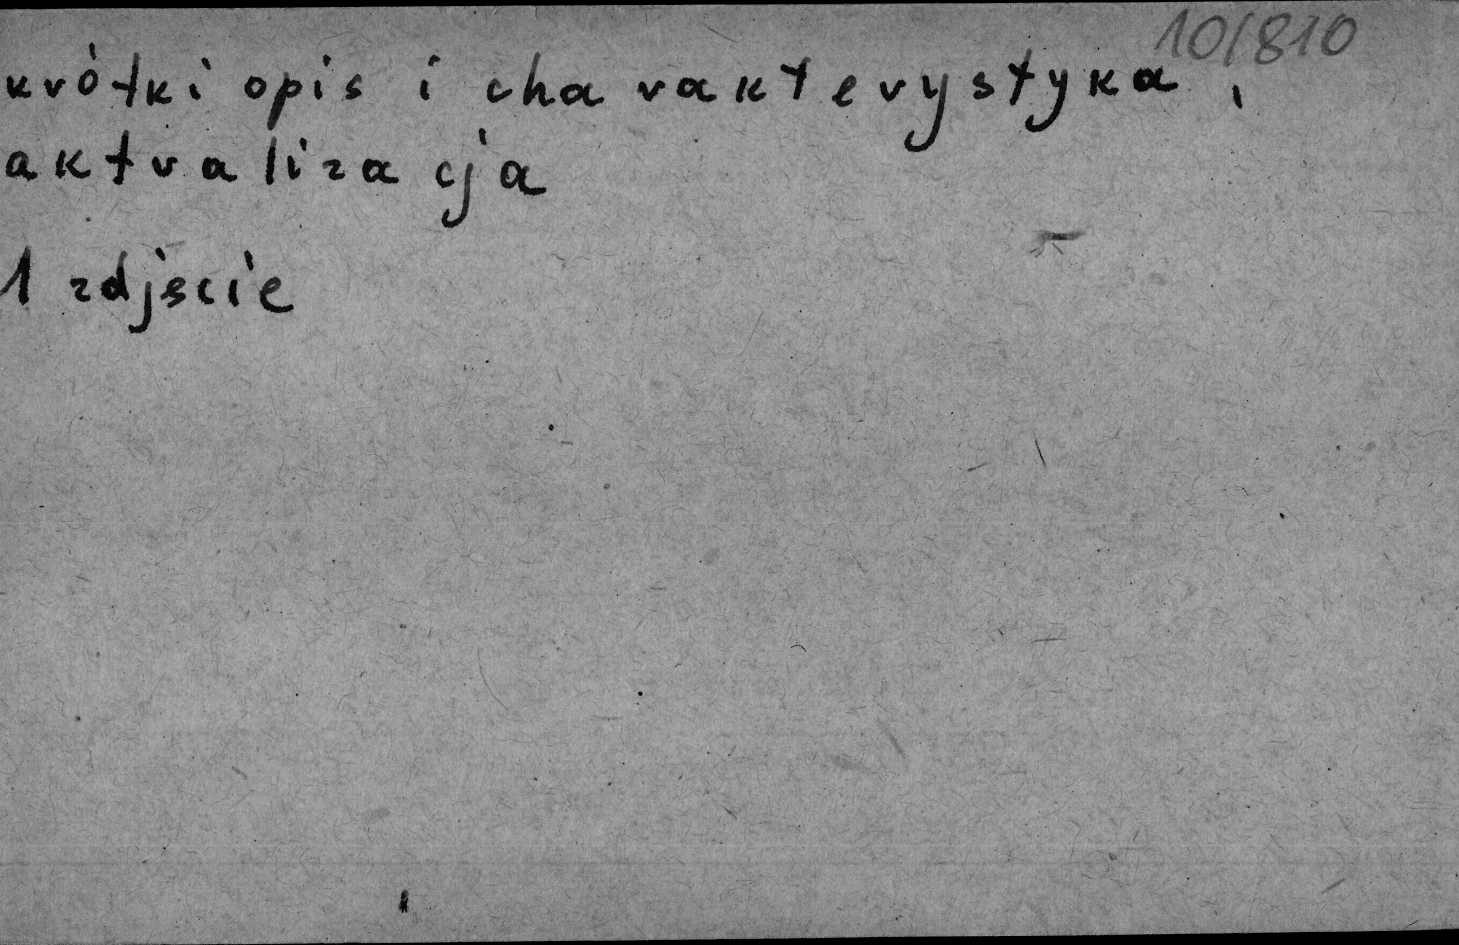 10/810
krótki opis i charakterystyka,
aktualizacja
1 zdjście